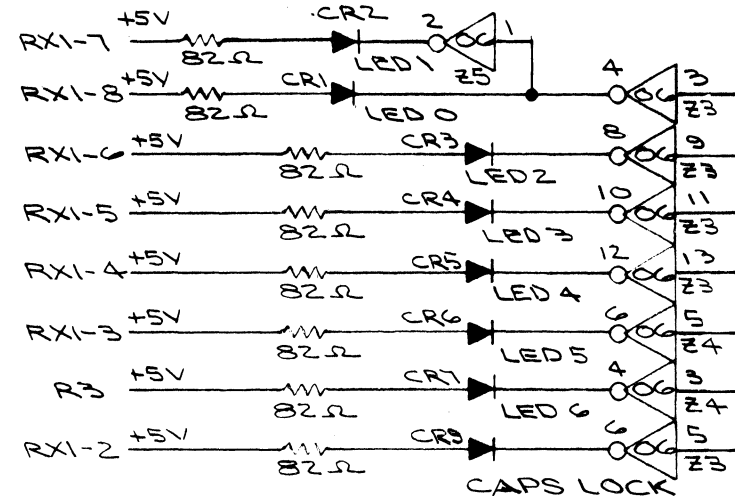 RX1-7 +5V 82Ω CR2 LED1 2 06 1 Z5
RX1-8 +5V 82Ω CR1 LED0 4 06 3 Z3
RX1-6 +5V 82Ω CR3 LED2 8 06 9 Z3
RX1-5 +5V 82Ω CR4 LED3 10 06 11 Z3
RX1-4 +5V 82Ω CR5 LED4 12 06 13 Z3
RX1-3 +5V 82Ω CR6 LED5 6 06 5 Z4
R3 +5V 82Ω CR7 LED6 4 06 3 Z4
RX1-2 +5V 82Ω CR9 6 06 5 Z3
CAPS LOCK